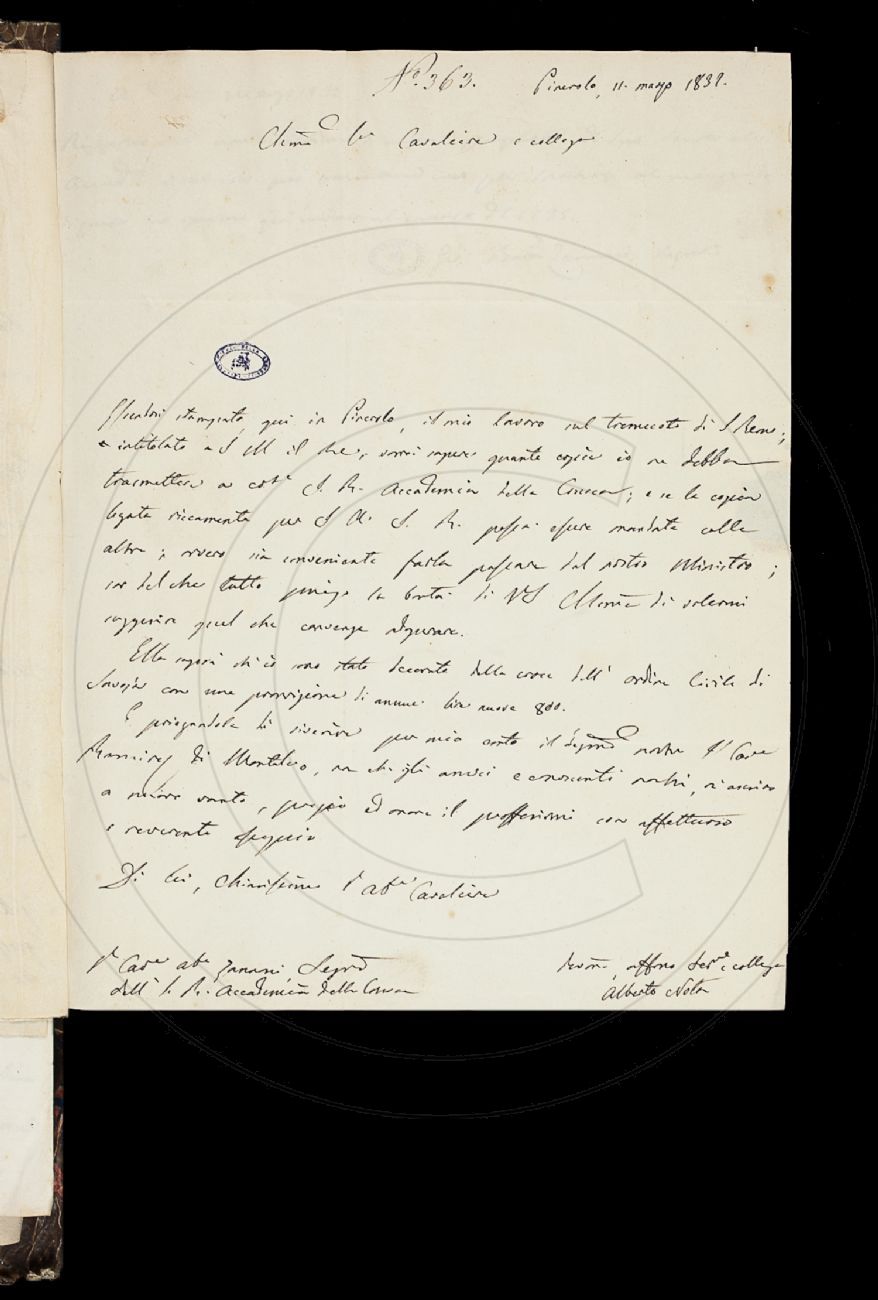 N.° 363. Pinerolo, 11. marzo 1832.
Chmo Sr Cavaliere e collega
Essendosi stampato, qui in Pinerolo, il mio lavoro sul tremuoto di S. Remo;
e intitolato a S. M. il Re, vorrei sapere quante copie io ne debba
trasmettere a cotta I. R. Accademia della Crusca; e se la copia
legata riccamente per S. A. I. R. possa essere mandata colle
altre; ovvero sia conveniente farla passare dal nostro Ministro;
del che tutto priego la bontà di V. S. Chiarma di volermi
suggerire quel che convenga adoperare.
Ella saprà ch'io sono stato decorato della croce dell' ordine Civile di
Savoja con una provvigione di annue lire nuove 800.
E priegandola di riverire per mio conto il Segrio nostro Sr Cave
Ramirez di Montalvo, non che gli amici e conoscenti nostri, mi ascrivo
a sommo vanto, pregio ed onore il profferirmi con affettuoso
e reverente ossequio
Di Lei, Chiarissimo Sr abe Cavaliere
Sr Cave abe Zannoni Segrio
dell' I. R. Accademia della Crusca
devmo, affmo servre e collega
Alberto Nota